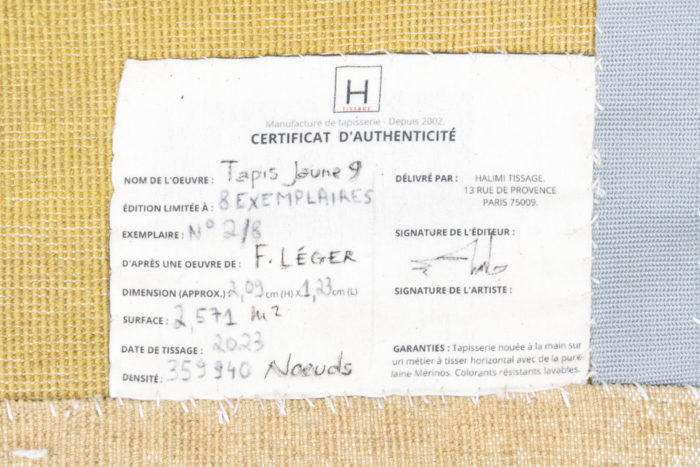 H
TISSAGE
Manufacture de tapisserie - Depuis 2002.
CERTIFICAT D'AUTHENTICITÉ
NOM DE L'OEUVRE : Tapis Jaune 9
ÉDITION LIMITÉE À : 8 EXEMPLAIRES
EXEMPLAIRE : N° 2/8
D'APRÈS UNE OEUVRE DE : F. LÉGER
DIMENSION (APPROX.) 2,09 cm (H) X 1,23 cm (L)
SURFACE : 2,571 m²
DATE DE TISSAGE : 2023
DENSITÉ : 359 940 Nœuds
DÉLIVRÉ PAR : HALIMI TISSAGE.
13 RUE DE PROVENCE
PARIS 75009.
SIGNATURE DE L'ÉDITEUR :
SIGNATURE DE L'ARTISTE :
GARANTIES : Tapisserie nouée à la main sur
un métier à tisser horizontal avec de la pure
laine Mérinos. Colorants résistants lavables.